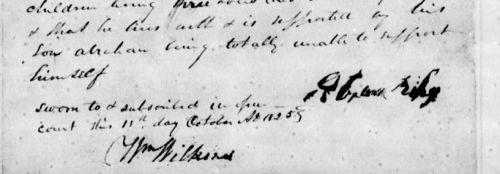 children being
& that he lives with & is supported by his
Son abraham being totally unable to support
himself
sworn to & subscribed in open
court this 11th day October AD 1825
Wm Wilkins